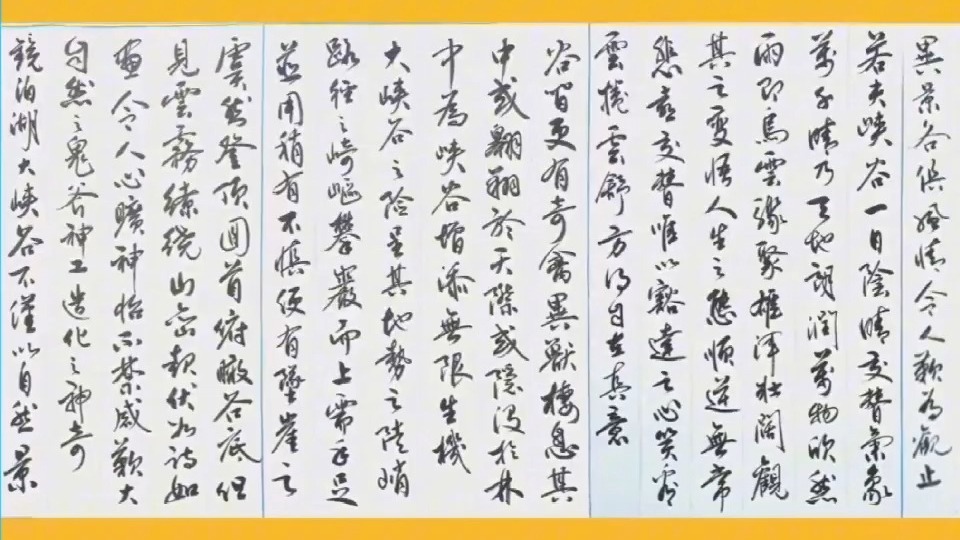 異景各俱風情令人歎為觀止
若夫峽谷一日陰晴交替氣象
萬千晴乃天地朗潤萬物欣然
雨即馬雲環聚雄渾壯闊觀
其之變悟人生之態順逆無常
悲喜交替唯以豁達之心笑看
雲捲雲舒方得自在真意
谷間更有奇禽異獸棲息其
中或翱翔於天際或隱沒於林
中為峽谷增添無限生機
大峽谷之險呈其地勢之陡峭
路徑之崎嶇攀巖而上需手足
並用稍有不慎便有墜崖之
虞然登頂回首俯瞰谷底但
見雲霧繚繞山巒起伏如詩如
畫令人心曠神怡不禁感歎大
自然之鬼斧神工造化之神奇
鏡泊湖大峽谷不僅以自然景